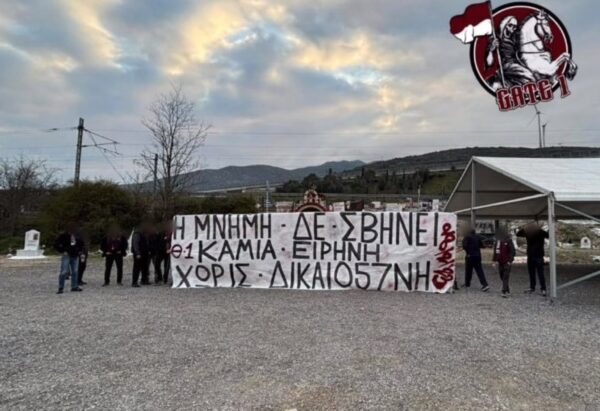 GATE 1
Η ΜΝΗΜΗ · ΔΕ · ΣΒΗΝΕΙ
Θ1 ΚΑΜΙΑ ΕΙΡΗΝΗ
ΧΩΡΙΣ · ΔΙΚΑΙΟ57ΝΗ